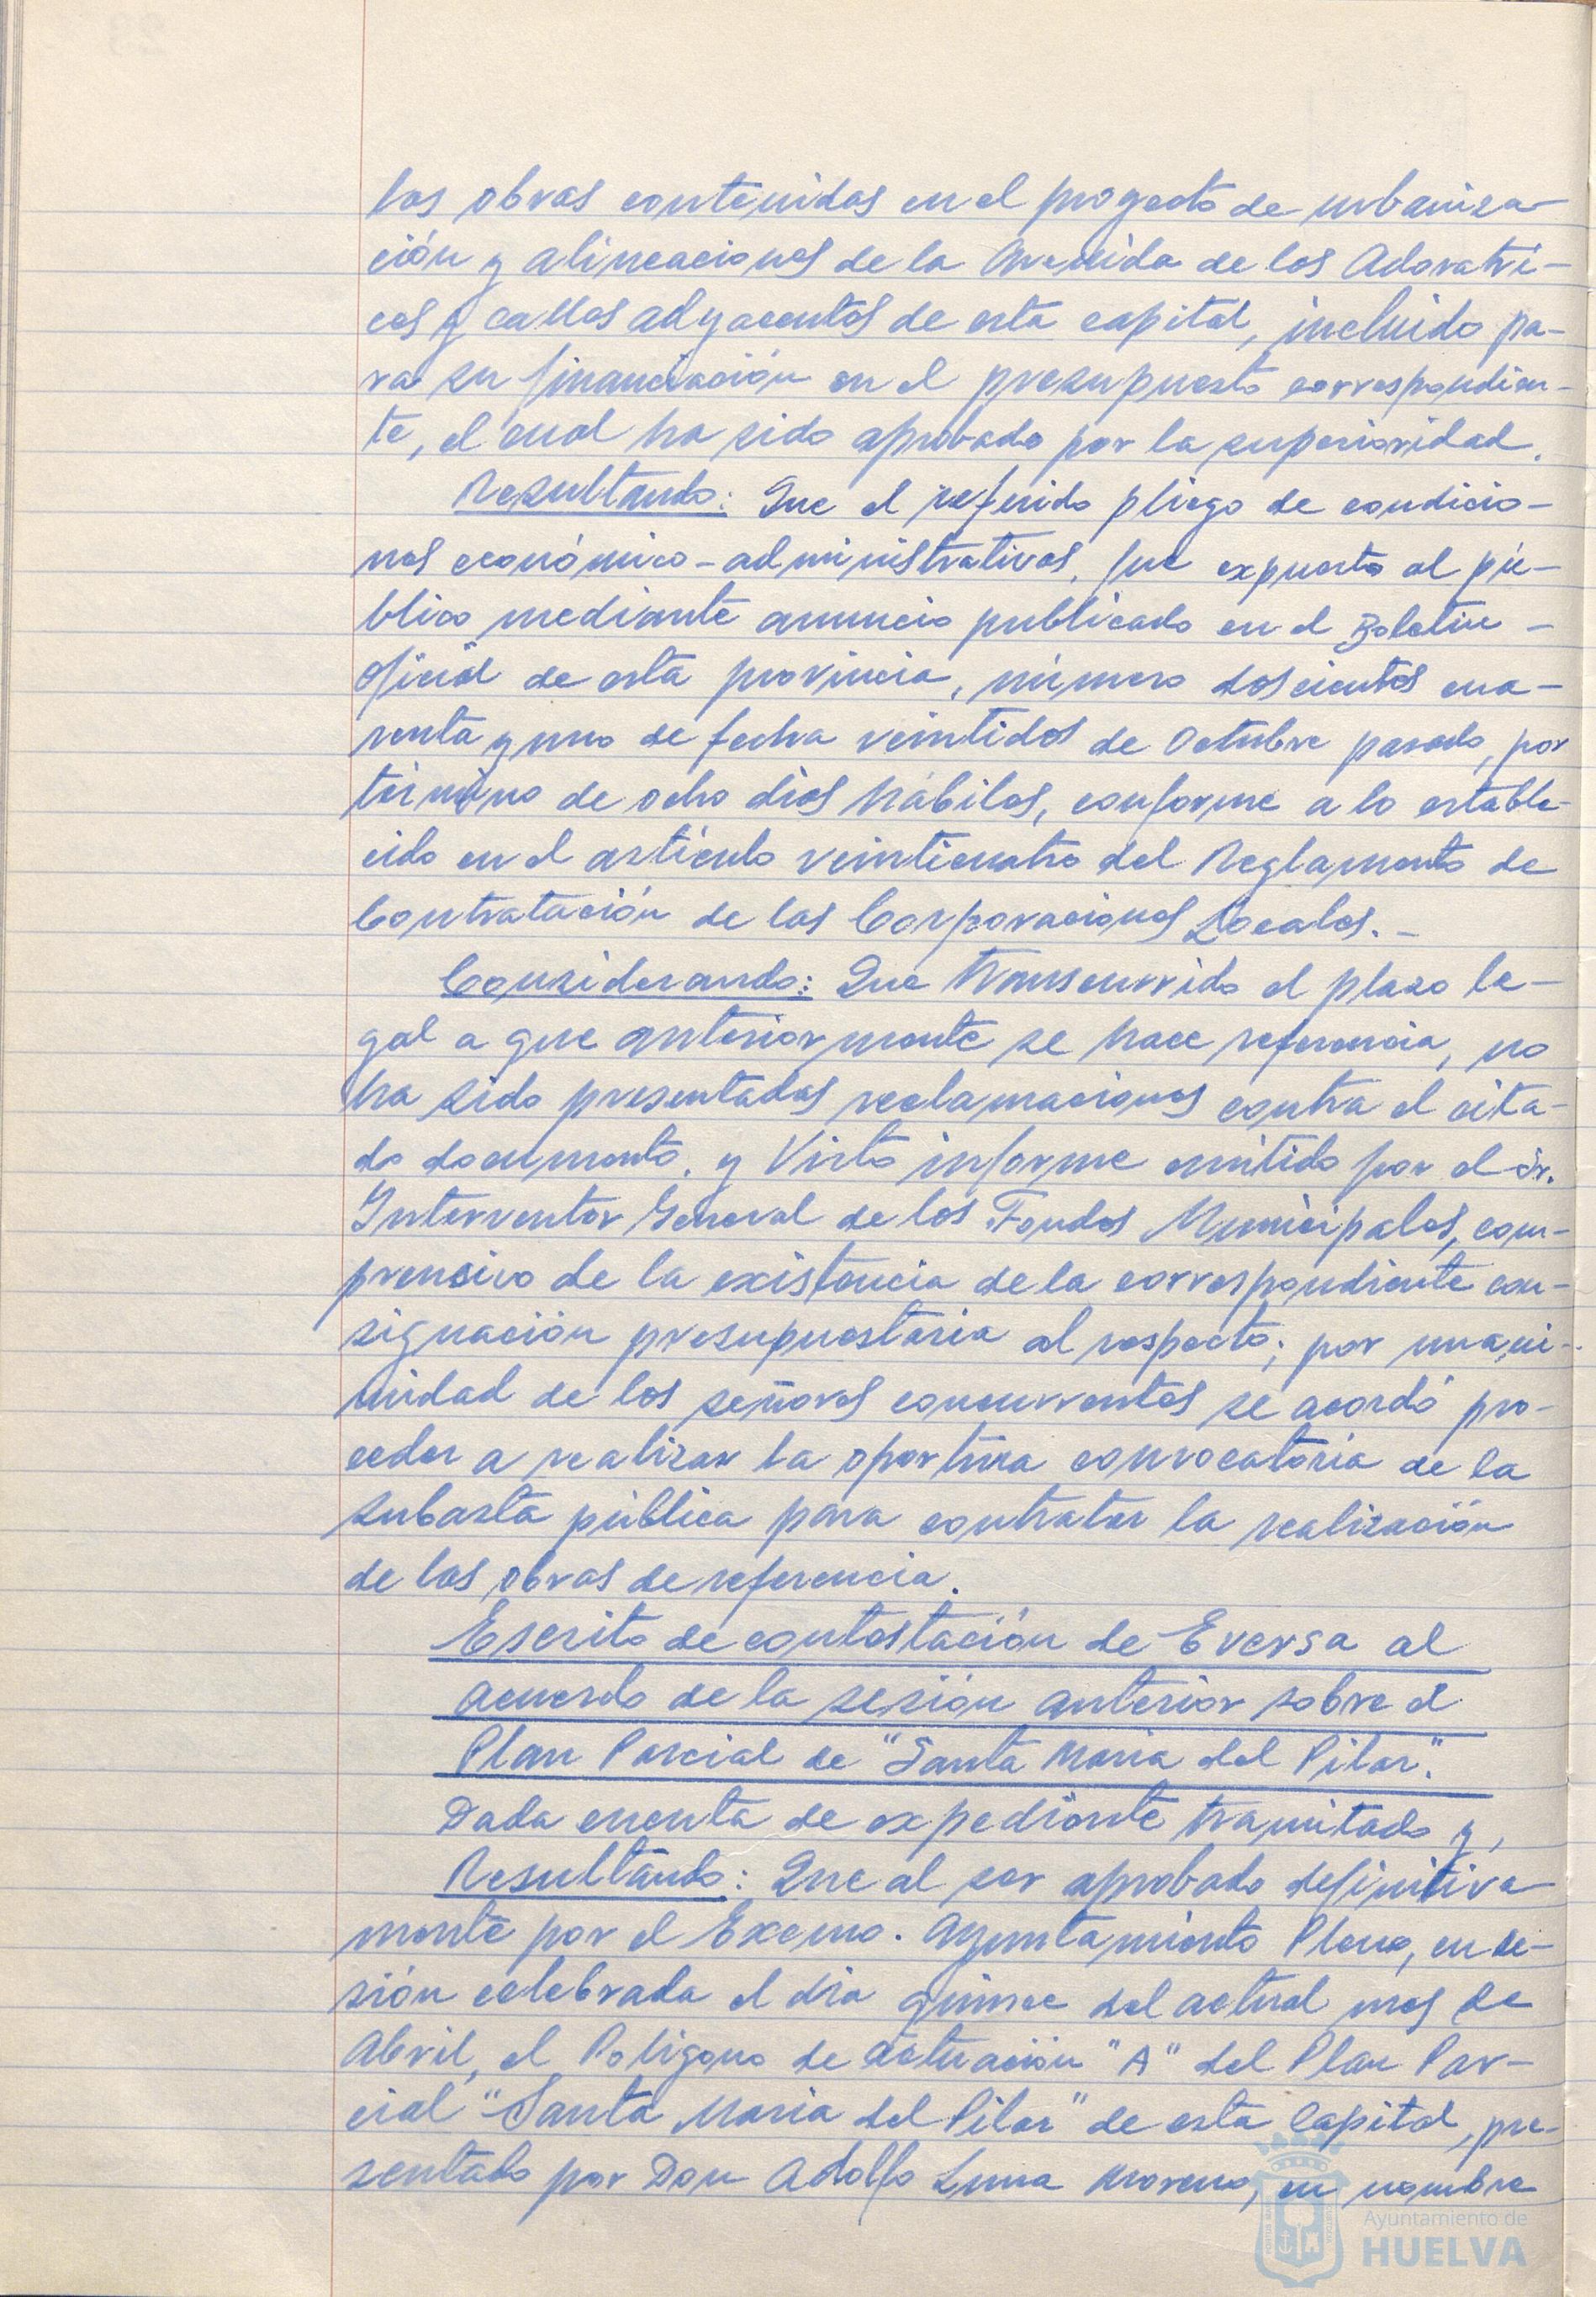 las obras contenidas en el proyecto de urbaniza-
ción y alineaciones de la Avenida de las Adoratri-
ces y calles adyacentes de esta capital, incluido pa-
ra su financiación en el presupuesto correspondien-
te, el cual ha sido aprobado por la superioridad.
Resultando: Que el referido pliego de condicio-
nes económico-administrativas, fue expuesto al pú-
blico mediante anuncio publicado en el Boletin -
Oficial de esta provincia, número doscientos cua-
renta y uno de fecha veintidos de Octubre pasado, por
término de ocho dias hábiles, conforme a lo estable-
cido en el artículo veinticuatro del Reglamento de
Contratación de las Corporaciones Locales. -
Considerando: Que transcurrido el plazo le-
gal a que anteriormente se hace referencia, no
ha sido presentadas reclamaciones contra el cita-
do documento, y Visto informe emitido por el Sr.
Interventor General de los Fondos Municipales, com-
prensivo de la existencia de la correspondiente con-
signación presupuestaria al respecto; por unani-
midad de los señores concurrentes se acordó pro-
ceder a realizar la oportuna convocatoria de la
subasta pública para contratar la realización
de las obras de referencia.
Escrito de contestación de Eversa al
acuerdo de la sesión anterior sobre el
Plan Parcial de "Santa Maria del Pilar".
Dada cuenta de expediente tramitado y,
Resultando: Que al ser aprobado definitiva-
mente por el Excmo. Ayuntamiento Pleno, en se-
sión celebrada el dia quince del actual mes de
Abril, el Poligono de actuación "A" del Plan Par-
cial "Santa Maria del Pilar" de esta Capital, pre-
sentado por Don Adolfo Luna Moreno, en nombre
Ayuntamiento de
HUELVA